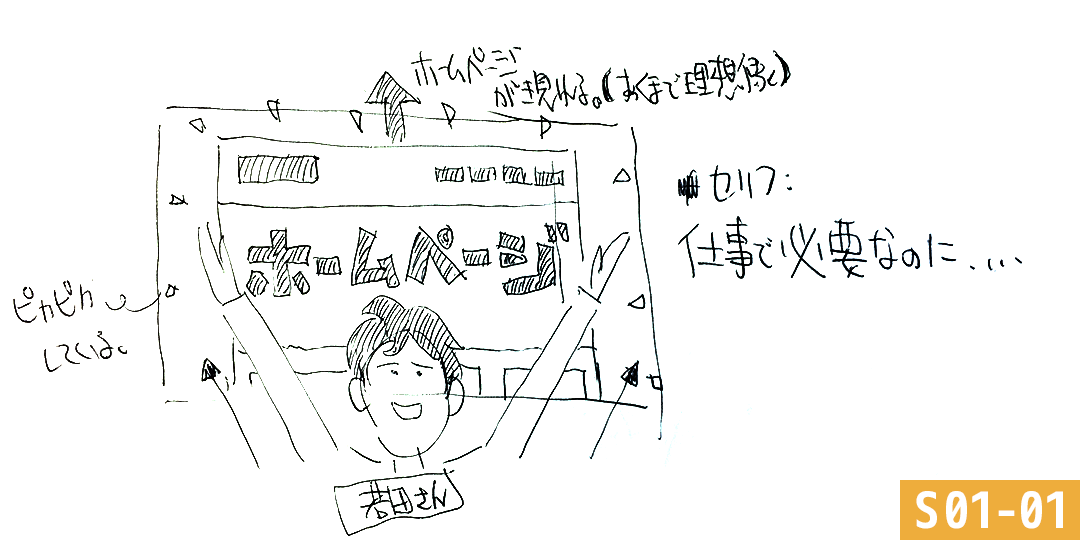 ホームページ
が現れる。(あくまで理想像)
セリフ:
仕事で必要なのに....
ホームページ
ピカピカ
している。
君田さん
S01-01